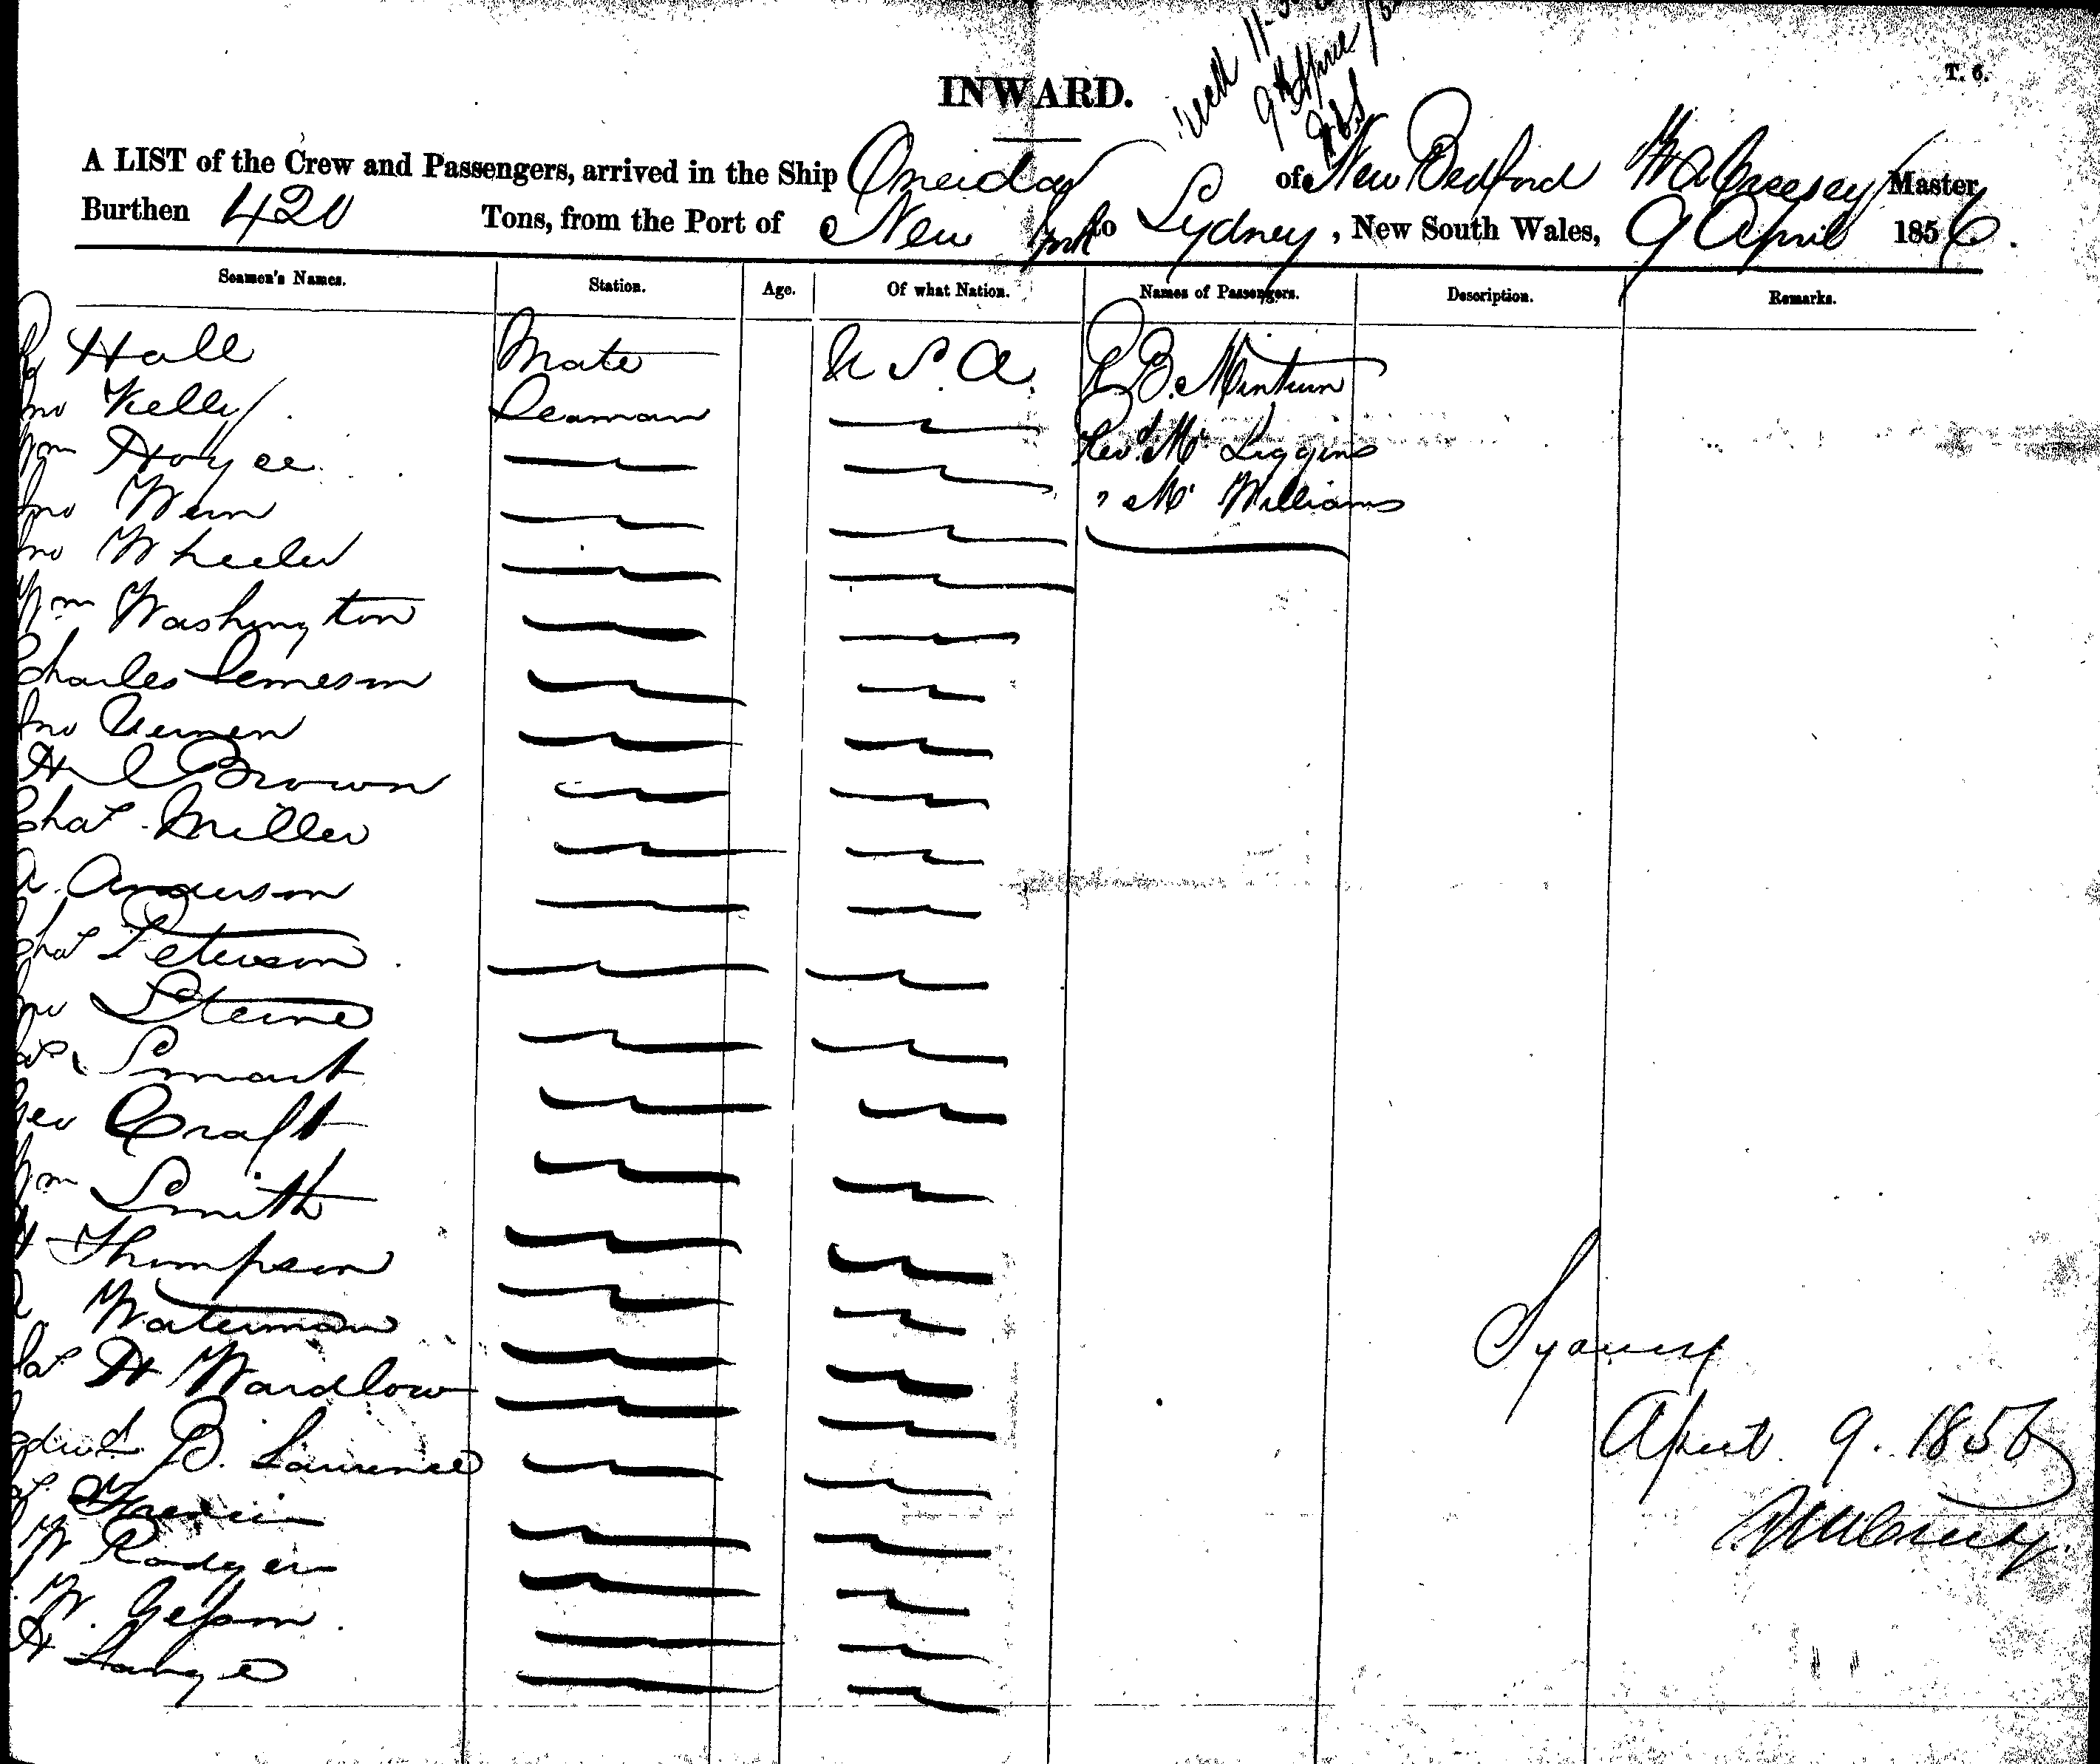 T. 6.
INWARD.
9th April
A LIST of the Crew and Passengers, arrived in the Ship Oneida of New Bedford Master
Burthen 420 Tons, from the Port of New York to Sydney, New South Wales, 9 April 1856.
Seamen's Names. Station. Age. Of what Nation. Names of Passengers. Description. Remarks.
Hall Mate U S. A. R B. Minturn
Jno Kelly Seaman
Revd. Mr Liggins
Wm Hoyce
" Mr Williams
Jno Wern
Jno Wheeler
Wm Washington
Charles Jemeson
Jno
H C Brown
Chas Miller
A. Anderson
Chas Peterson
Jno Steine
Smart
Geo Craft
Wm Smith
H Thompson
Waterman
Chas H Wardlow
Sydney
Edwd B. Laurence
April 9. 1856
W Rodgers
W. Jessom
H Lange